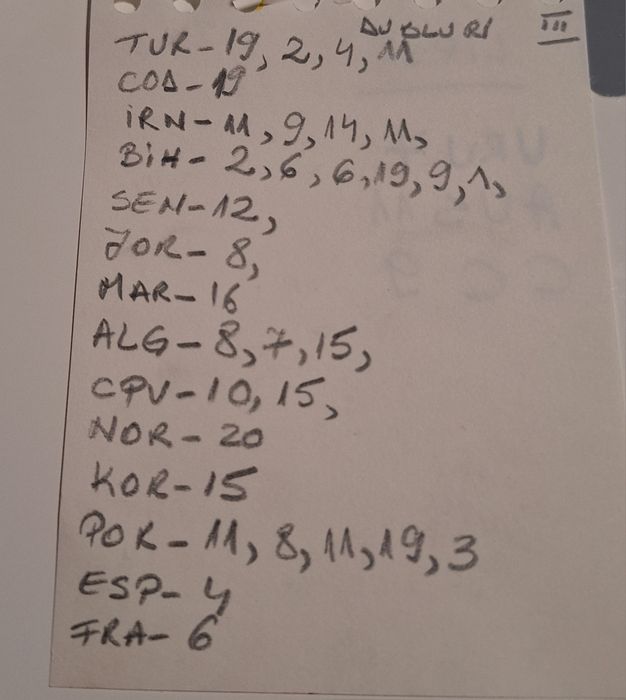 DUPLURI III
TUR-19, 2, 4, 11
COD-19
iRN-11, 9, 14, 11,
BiH- 2, 6, 6, 19, 9, 1,
SEN-12,
JOR- 8,
MAR-16
ALG-8, 7, 15,
CPV-10, 15,
NOR-20
KOR-15
POR-11, 8, 11, 19, 3
ESP- 4
FRA- 6